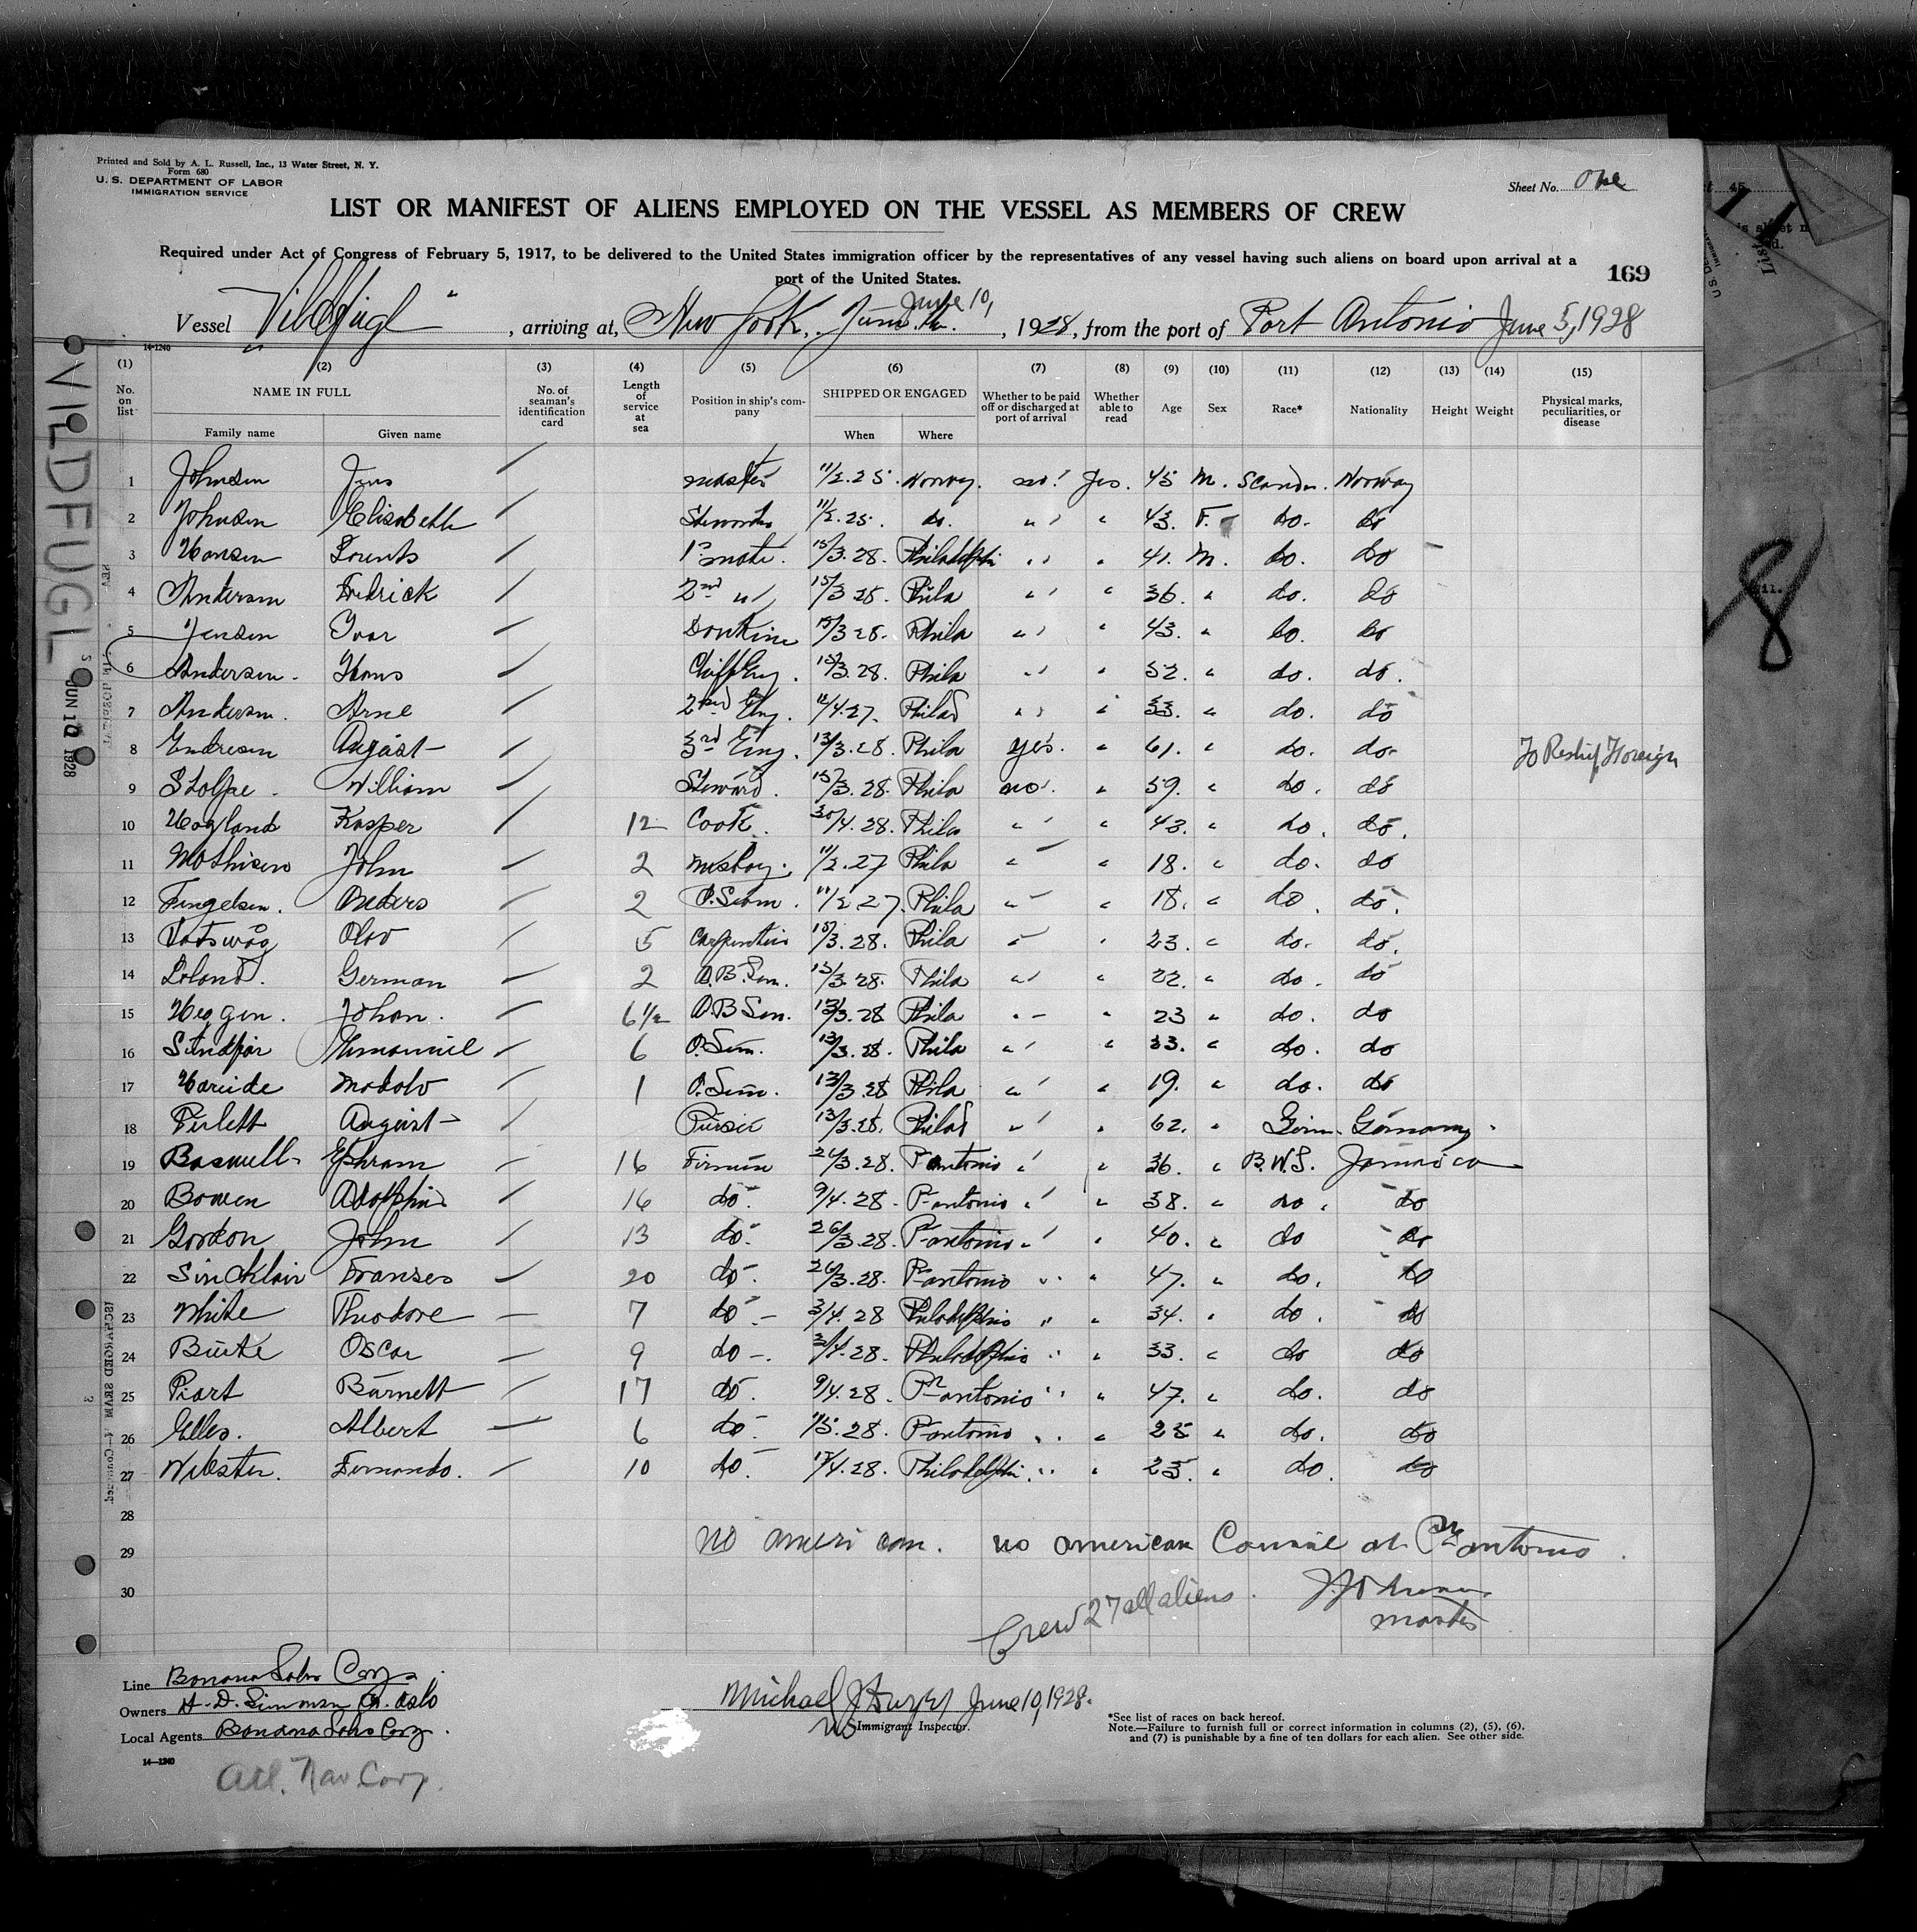 Printed and Sold by A. L. Russell, Inc., 13 Water Street, N. Y.
Form 680
U. S. DEPARTMENT OF LABOR
IMMIGRATION SERVICE
Sheet No. One
LIST OR MANIFEST OF ALIENS EMPLOYED ON THE VESSEL AS MEMBERS OF CREW
Required under Act of Congress of February 5, 1917, to be delivered to the United States immigration officer by the representatives of any vessel having such aliens on board upon arrival at a
port of the United States.
169
Vessel "Vildfugl", arriving at, New York, June 10, 1928, from the port of Port Antonio June 5, 1928
14-1240
(1) (2) (3) (4) (5) (6) (7) (8) (9) (10) (11) (12) (13) (14) (15)
No. on list NAME IN FULL No. of seaman's identification card Length of service at sea Position in ship's company SHIPPED OR ENGAGED Whether to be paid off or discharged at port of arrival Whether able to read Age Sex Race* Nationality Height Weight Physical marks, peculiarities, or disease
Family name Given name When Where
1 Johnsen Jens master 11/2.25. Norway. no Yes. 45 M. Scandn. Norway
2 Johnsen Elisabeth 11/2.25. do. " " 43. F. do. do
3 Hansen Lorents 1st mate. 15/3.28. Philadelphi " " 41. M. do. do
4 Andersen Fredrick 2nd " 15/3 28. Phila " " 36. " do. do
5 Jensen Ivar Donkim 15/3 28. Phila " " 43. " do. do
6 Andersen. Hans Chiff Eng. 15/3.28. Phila " " 52. " do. do.
7 Andersen. Arne 2nd Eng. Philad " " 33. " do. do
8 Endresen August 3rd Eng. 13/3.28. Phila yes. " 61. " do. do. To Reship Foreign
9 Stolpe. William Steward. 15/3.28. Phila no. " 59. " do. do
10 Hogland Kasper 12 Cook. 30/4.28. Phila " " 43. " do. do.
11 Mathisen John 2 messboy. 11/2.27 Phila " " 18. " do. do
12 Fingelsen. Anders 2 O.Seam. 11/2 27. Phila " " 18. " do. do.
13 Vatsvåg Olav 5 Carpentier 15/3.28. Phila " " 23. " do. do.
14 Loland. German 2 A.B.Sem. 13/3.28. Phila " " 22. " do. do
15 Heggen. Johan. 6 1/2 A B Sen. 13/3.28 Phila " " 23 " do. do
16 Emanuel 6 O.Sem. 13/3.28. Phila " " 33. " do. do
17 Hareide Modolv 1 O.Sem. 13/3.28 Phila " " 19. " do. do
18 Perlett August 13/3.28. Philad " " 62. " Germ. Germany.
19 Boswell Ephram 16 Firmen 26/3.28. P antonio " " 36. " B.W.I. Jamaica
20 Bowen Adolphus 16 do. 9/4.28. P antonio " " 38. " do. do
21 Gordon John 13 do. 26/3.28. P antonio " " 40. " do do
22 Sincklair Franses 20 do. 26/3.28. P antonio " " 47. " do. do
23 White Theodore 7 do. 3/4.28 Philadelphia " " 34. " do. do
24 Burke Oscar 9 do. 3/4.28. Philadelphia " " 33. " do do
25 Piart Barnett 17 do. 9/4.28. P antonio " " 47. " do. do
26 Elles. Albert 6 do. 1/5.28. P antonio " " 25 " do. do
27 Webster. Fernando. 10 do. 17/4.28. Philadelphi " " 25. " do. do
28
29 no american. no american Counsil at Pr antonio.
30 Crew 27 all aliens. J. Johnsen
master
Line Banana Sales Corp.
Owners Oslo
Local Agents Banana Sales Corp.
14-1240
Atl. Nav. Corp.
Michael J. June 10, 1928.
Immigrant Inspector.
*See list of races on back hereof.
Note.—Failure to furnish full or correct information in columns (2), (5), (6),
and (7) is punishable by a fine of ten dollars for each alien. See other side.
VILDFUGL
JUN 10 1928
8